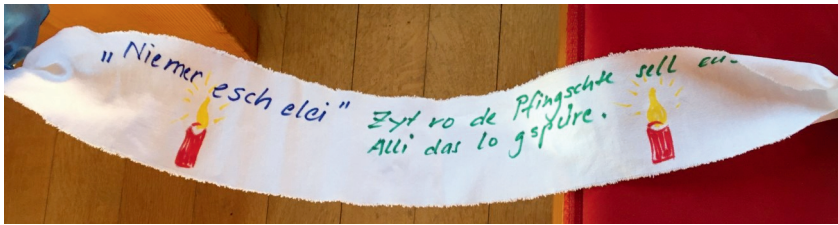 „Niemer esch elei"
Zyt vo de Pfingschte sell
Alli das lo gspüre.